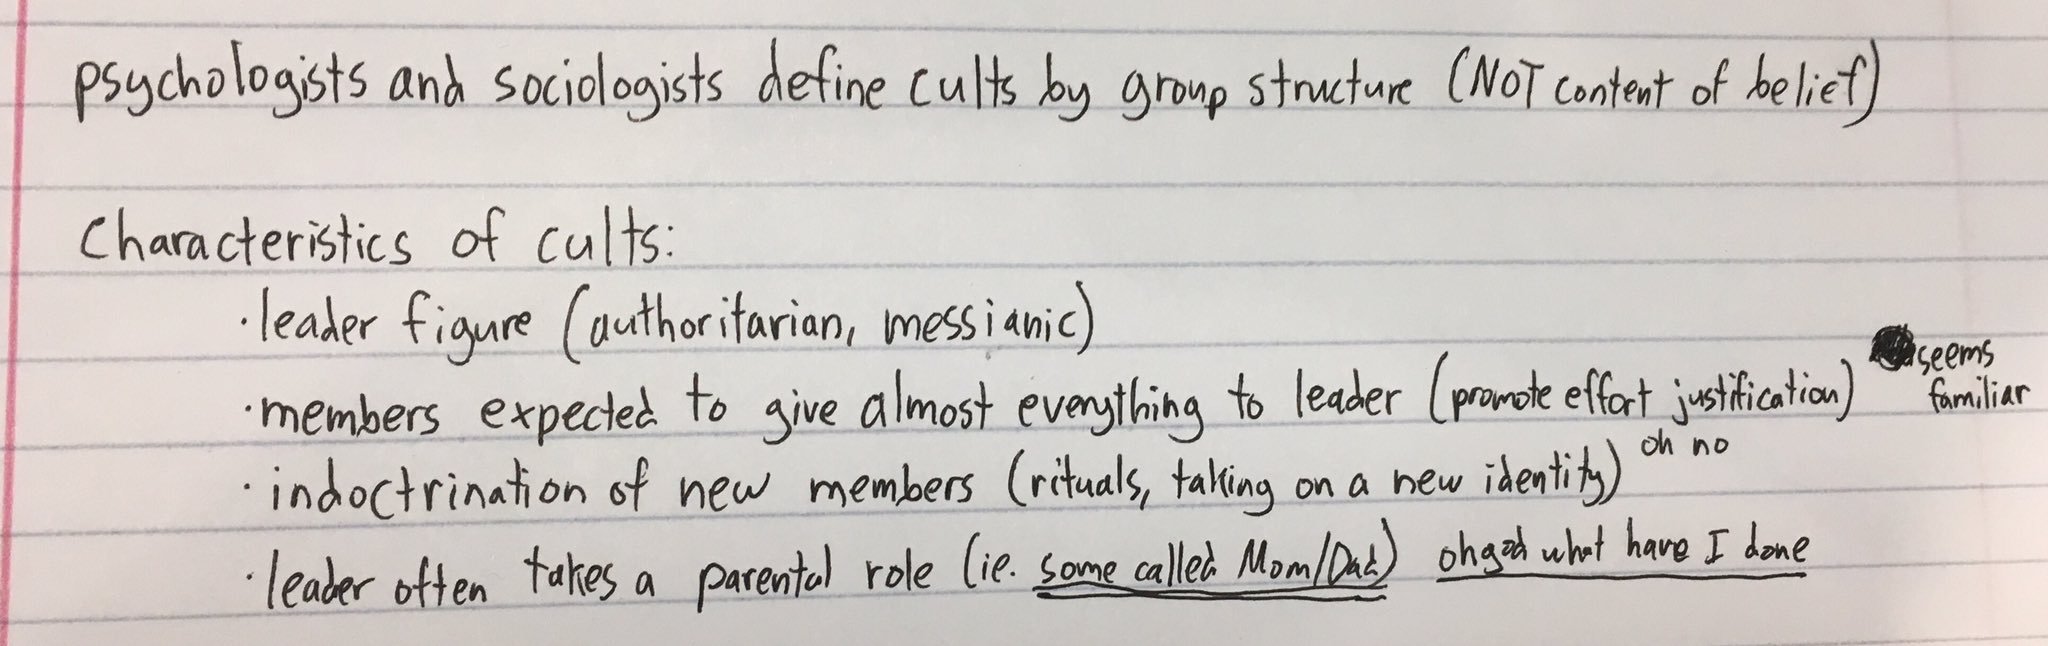 psychologists and sociologists define cults by group structure (NOT content of belief)
Characteristics of cults:
· leader figure (authoritarian, messianic)
· members expected to give almost everything to leader (promote effort justification) seems familiar
· indoctrination of new members (rituals, taking on a new identity) oh no
· leader often takes a parental role (ie. some called Mom/Dad) ohgod what have I done